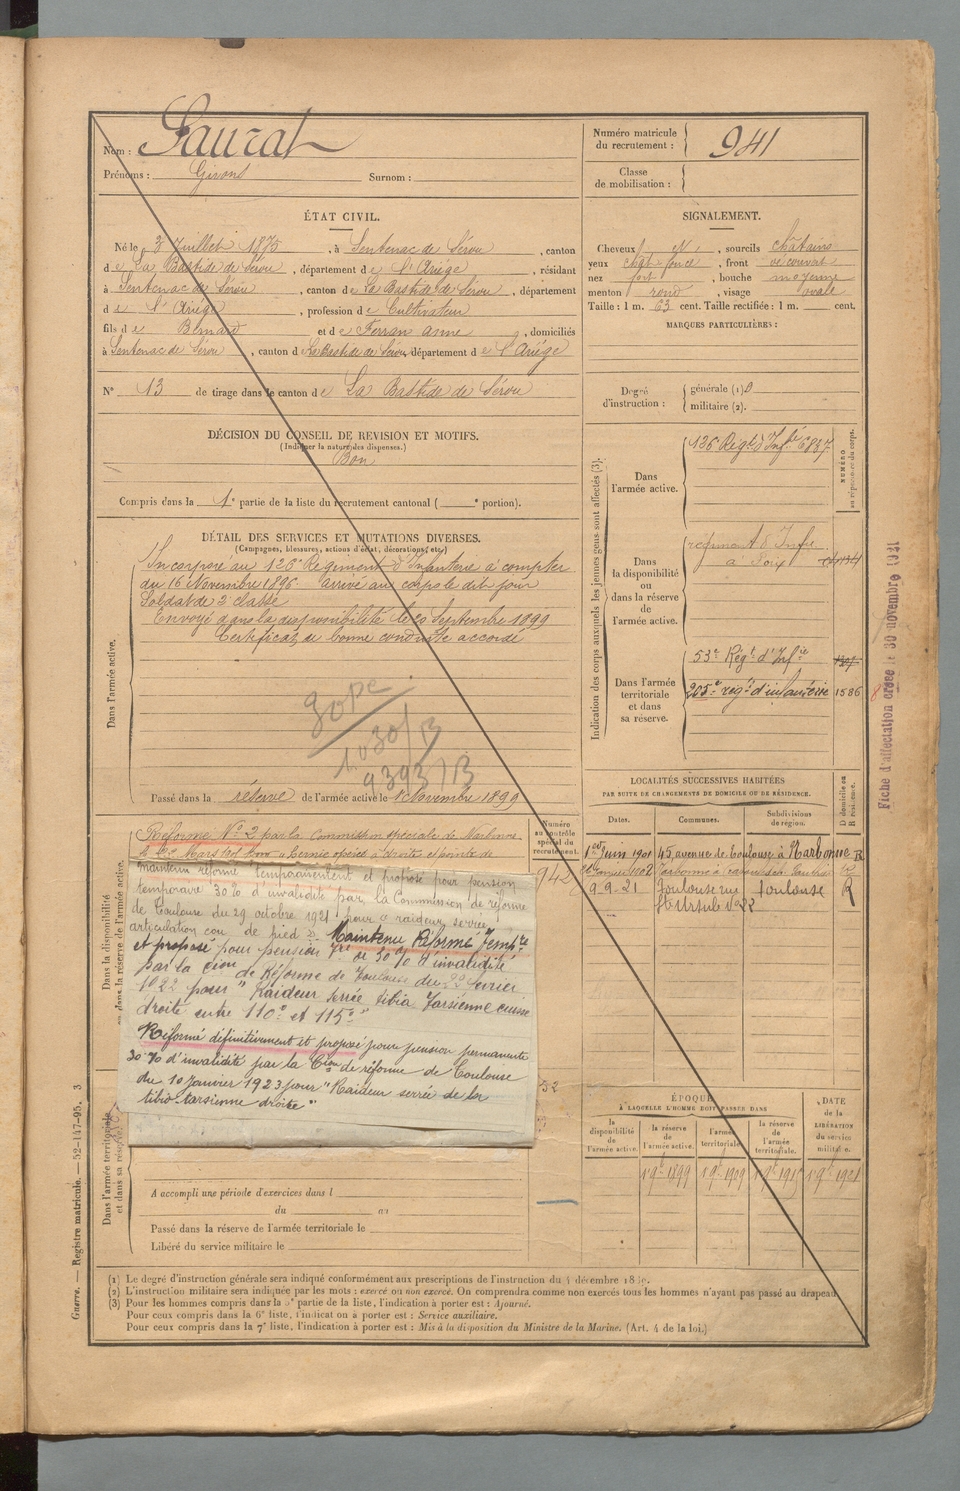 Nom : Saurat
Prénoms : Girons Surnom :
Numéro matricule du recrutement : 941
Classe de mobilisation :
ÉTAT CIVIL.
Né le 3 Juillet 1875, à Sentenac de Sérou, canton
de La Bastide de Sérou, département de l'Ariége, résidant
à Sentenac de Sérou, canton de La Bastide de Sérou, département
de l'Ariége, profession de Cultivateur
fils de Bernard et de Ferran Anne, domiciliés
à Sentenac de Sérou, canton de La Bastide de Sérou, département de l'Ariége
N° 13 de tirage dans le canton de La Bastide de Sérou
SIGNALEMENT.
Cheveux N, sourcils châtains
yeux chat foncé, front découvert
nez fort, bouche moyenne
menton rond, visage ovale
Taille : 1 m. 63 cent. Taille rectifiée : 1 m. cent.
MARQUES PARTICULIÈRES :
Degré d'instruction : générale (1)
militaire (2).
DÉCISION DU CONSEIL DE REVISION ET MOTIFS.
(Indiquer la nature des dispenses.)
Bon
Compris dans la 1e partie de la liste du recrutement cantonal ( e portion).
DÉTAIL DES SERVICES ET MUTATIONS DIVERSES.
(Campagnes, blessures, actions d'éclat, décorations, etc.)
Dans l'armée active.
Incorporé au 126e Régiment d'Infanterie à compter
du 16 Novembre 1896 arrivé au corps le dit jour
Soldat de 2e classe
Envoyé dans la disponibilité le 20 Septembre 1899
Certificat de bonne conduite accordé
1030/B
9393/B
Passé dans la réserve de l'armée active le 1 Novembre 1899
Indication des corps auxquels les jeunes gens sont affectés (3).
NUMÉRO au répertoire du corps.
Dans l'armée active.
126 Régt d'Infie 6837
Dans la disponibilité ou dans la réserve de l'armée active.
régiment d'Infie
à Foix
Dans l'armée territoriale et dans sa réserve.
53e Régt d'Infie
205e régt d'infanterie 1586
Fiche d'affectation créée le 30 novembre 1931
LOCALITÉS SUCCESSIVES HABITÉES
PAR SUITE DE CHANGEMENTS DE DOMICILE OU DE RÉSIDENCE.
Dates. Communes. Subdivisions de région. D domicile ou R résidence.
1er Juin 1901 45 avenue de Toulouse à Narbonne R
1902 Narbonne
9-9-21 Toulouse rue Toulouse R
Ste Ursule No 22
Dans la disponibilité ou dans la réserve de l'armée active.
Numéro au contrôle spécial du recrutement.
942
Réformé No 2 par la Commission spéciale de Narbonne
maintenu réformé temporairement et proposé pour pension
temporaire 30% d'invalidité par la Commission de réforme
de Toulouse du 29 octobre 1921 pour "raideur serrée
articulation cou de pied D. Maintenu Réformé Tempre
et proposé pour pension Tre de 30% d'invalidité
par la Cion de Réforme de Toulouse du février
1922 pour "Raideur serrée tibia Tarsienne cuisse
droite entre 110° et 115°"
Réformé définitivement et proposé pour pension permanente
30% d'invalidité par la Cion de réforme de Toulouse
du 10 Janvier 1923 pour "Raideur serrée de la
tibio-tarsienne droite"
52
ÉPOQUE
À LAQUELLE L'HOMME DOIT PASSER DANS
la disponibilité de l'armée active. la réserve de l'armée active. l'armée territoriale. la réserve de l'armée territoriale.
DATE de la LIBÉRATION du service militaire.
1 9bre 1899 1 9bre 1909 1 9bre 1915 1 9bre 1921
Dans l'armée territoriale et dans sa réserve.
A accompli une période d'exercices dans l
du au
Passé dans la réserve de l'armée territoriale le
Libéré du service militaire le
(1) Le degré d'instruction générale sera indiqué conformément aux prescriptions de l'instruction du 4 décembre
(2) L'instruction militaire sera indiquée par les mots : exercé ou non exercé. On comprendra comme non exercés tous les hommes n'ayant pas passé au drapeau.
(3) Pour les hommes compris dans la 5e partie de la liste, l'indication à porter est : Ajourné.
Pour ceux compris dans la 6e liste, l'indication à porter est : Service auxiliaire.
Pour ceux compris dans la 7e liste, l'indication à porter est : Mis à la disposition du Ministre de la Marine. (Art. 4 de la loi.)
Guerre. — Registre matricule. — 52-147-95. 3